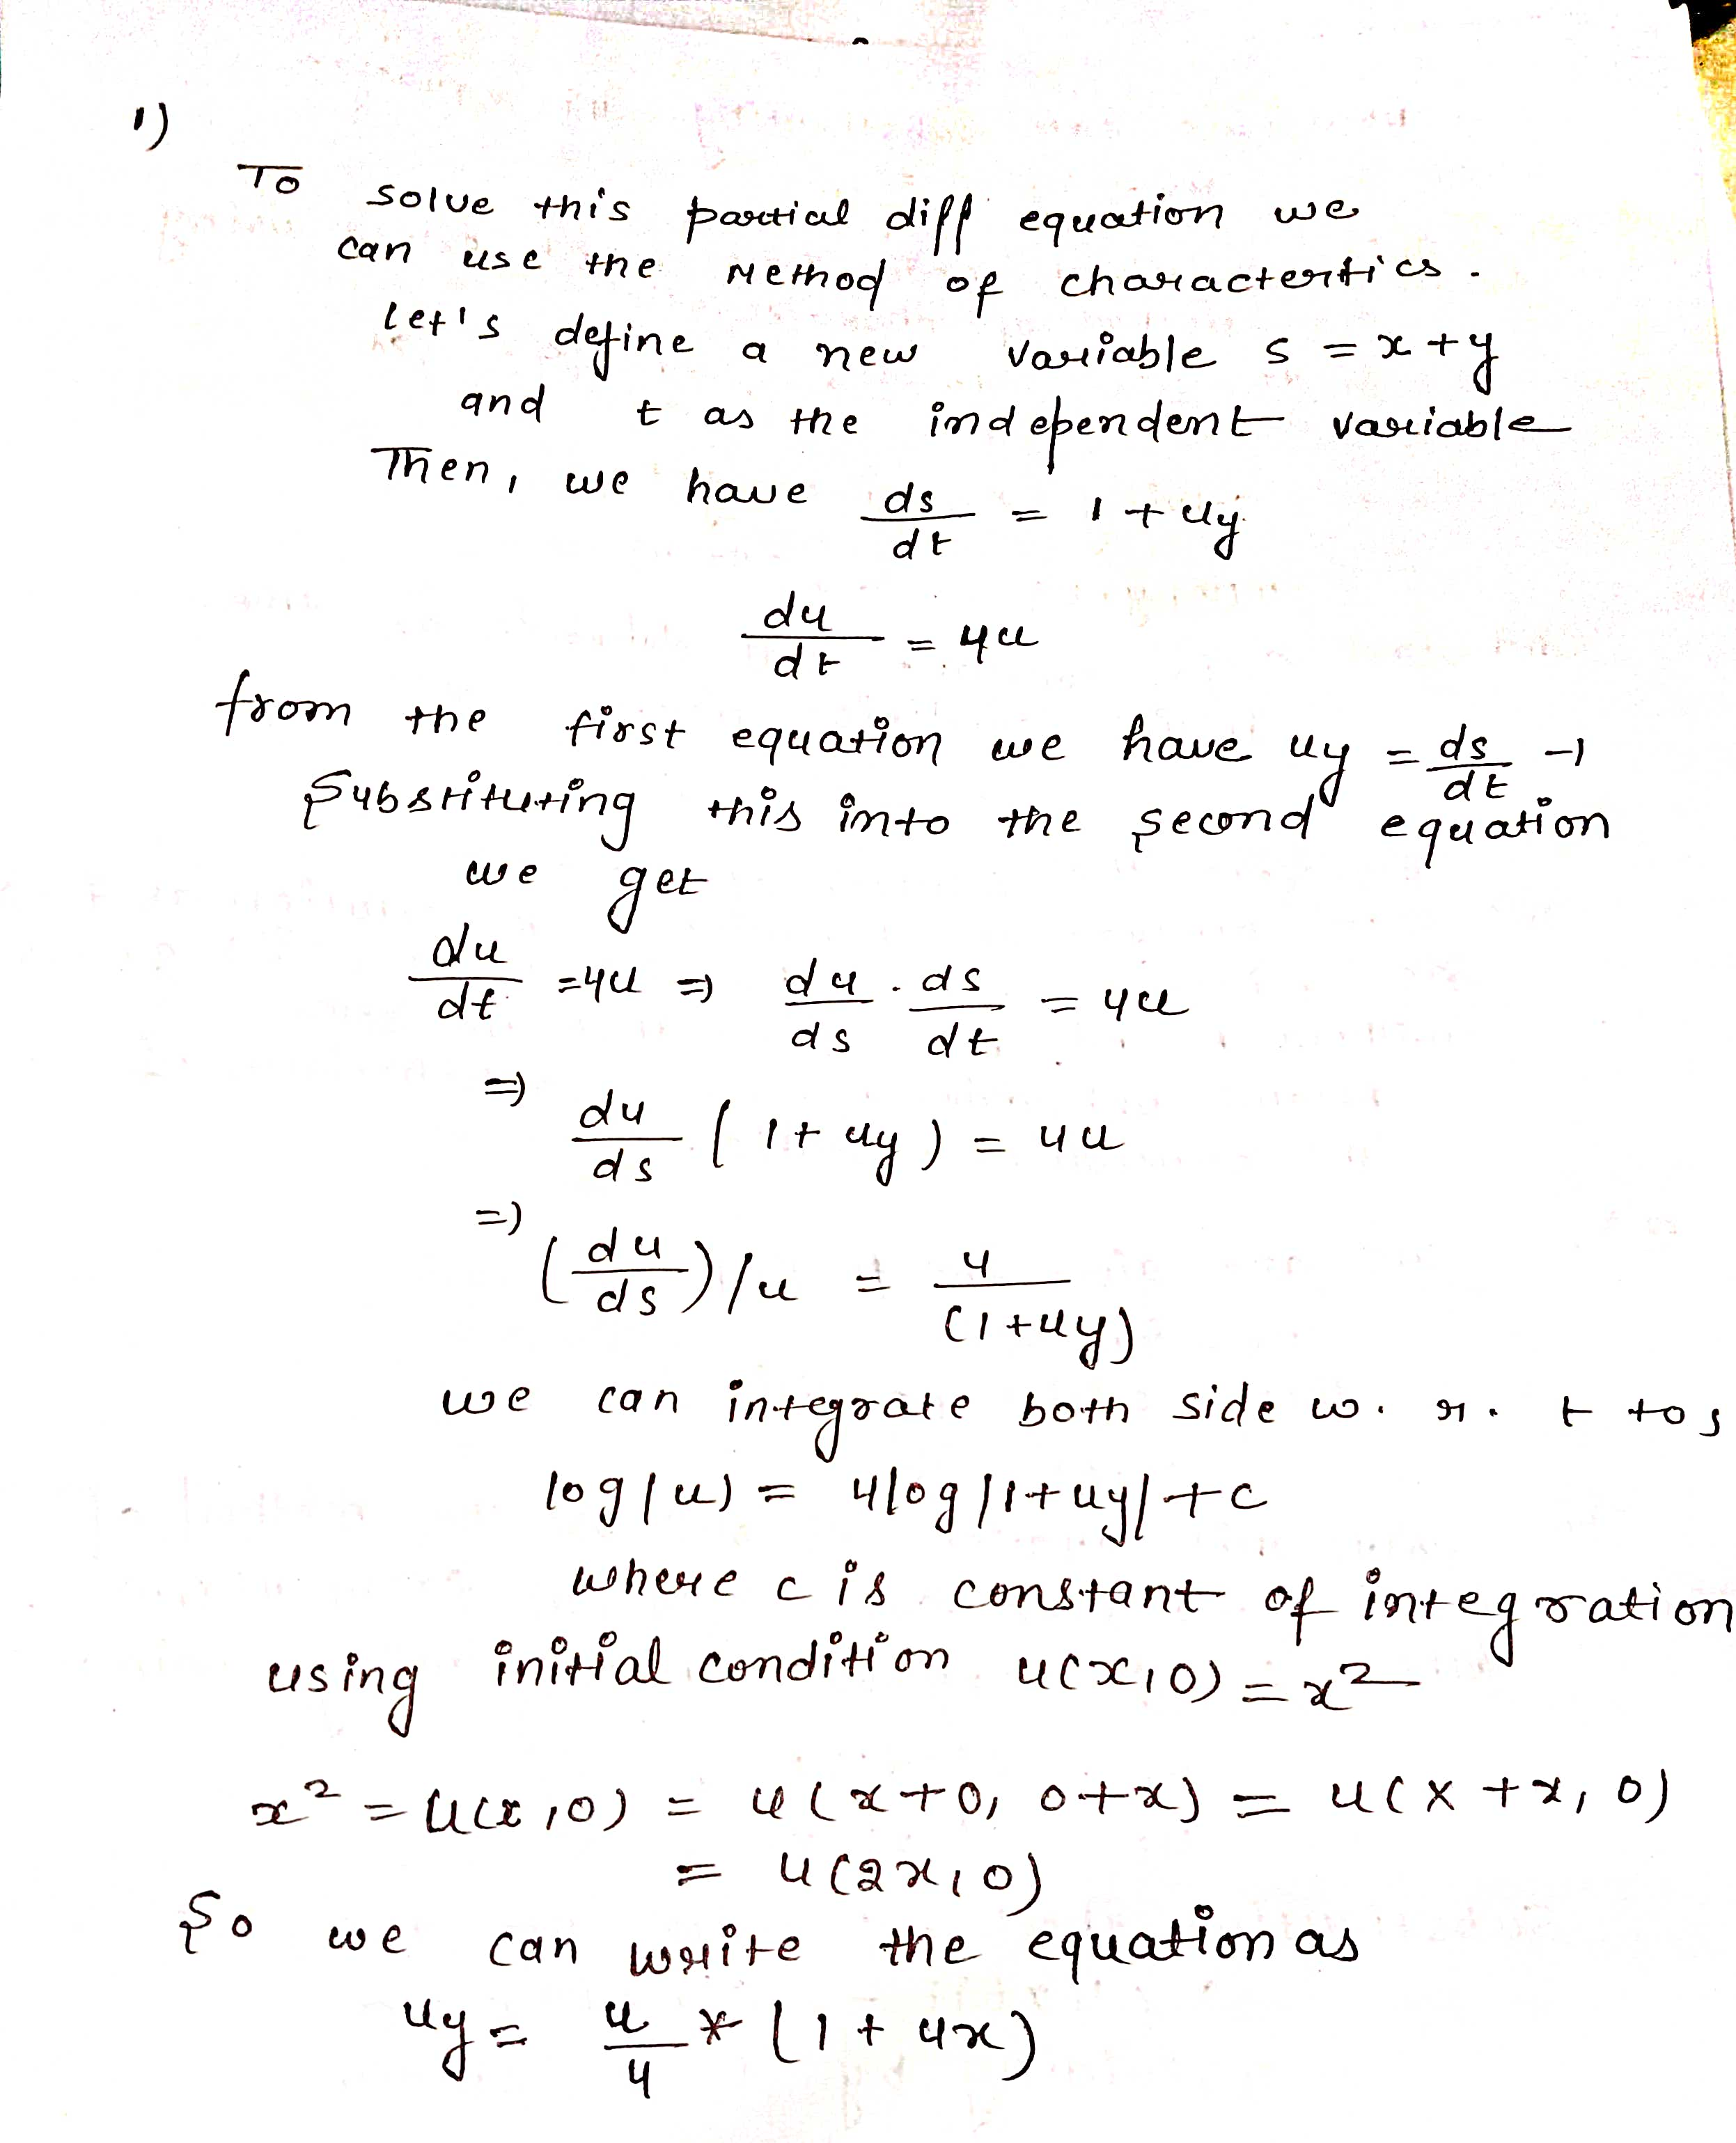 1)
To solve this partial diff equation we
can use the Method of charactertics.
let's define a new variable s = x + y
and t as the independent variable
Then, we have ds/dt = 1 + uy
du/dt = 4u
from the first equation we have uy = ds/dt -1
Substituting this into the second equation
we get
du/dt = 4u => du/ds . ds/dt = 4u
=> du/ds (1 + uy) = 4u
=> (du/ds)/u = 4/(1+uy)
we can integrate both side w. r. t to s
log|u) = 4log|1+uy|+c
where c is constant of integration
using initial condition u(x,0) = x²
x² = u(x,0) = u(x+0, 0+x) = u(x+x, 0)
= u(2x,0)
So we can write the equation as
uy = u/4 * (1 + 4x)